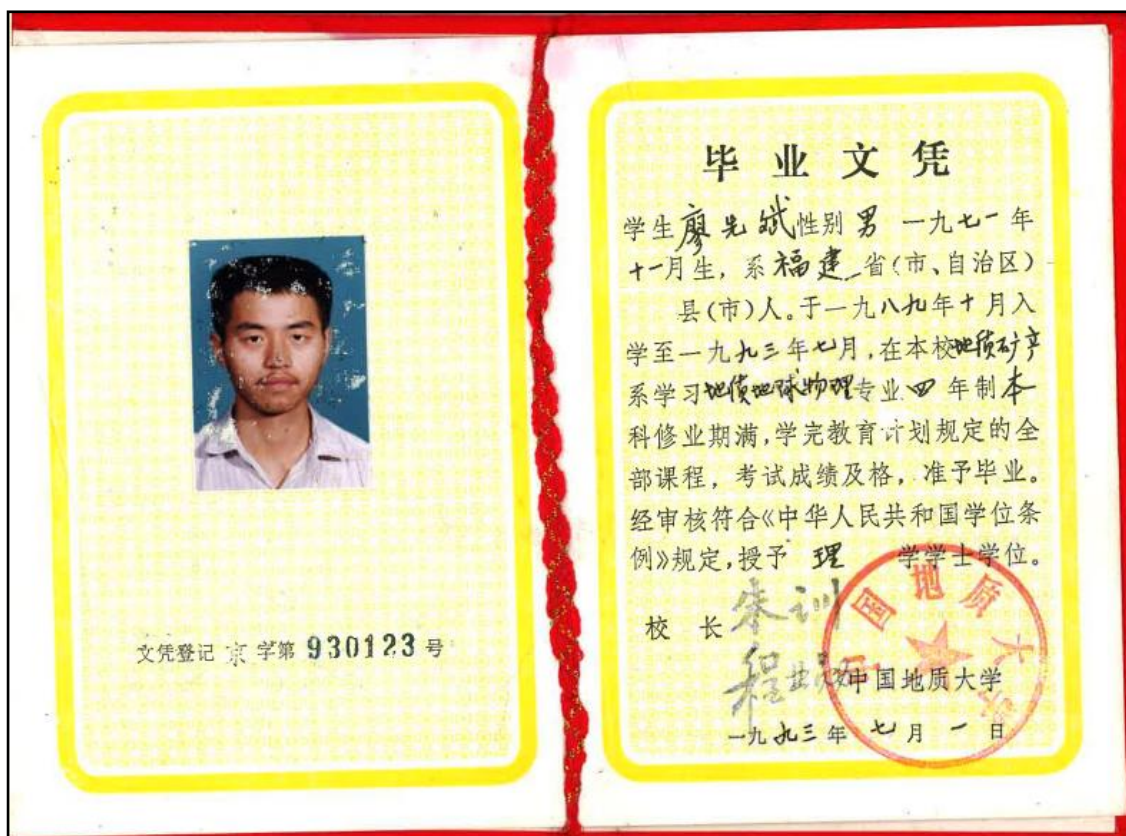 文凭登记京字第930123号
毕业文凭
学生廖先斌性别男一九七一年
十一月生，系福建省(市、自治区)
县(市)人。于一九八九年十月入
学至一九九三年七月，在本校地质矿产
系学习地质地球物理专业四年制本
科修业期满，学完教育计划规定的全
部课程，考试成绩及格，准予毕业。
经审核符合《中华人民共和国学位条
例》规定，授予理学学士学位。
校长朱训
中国地质大学
一九九三年七月一日
中国地质大学